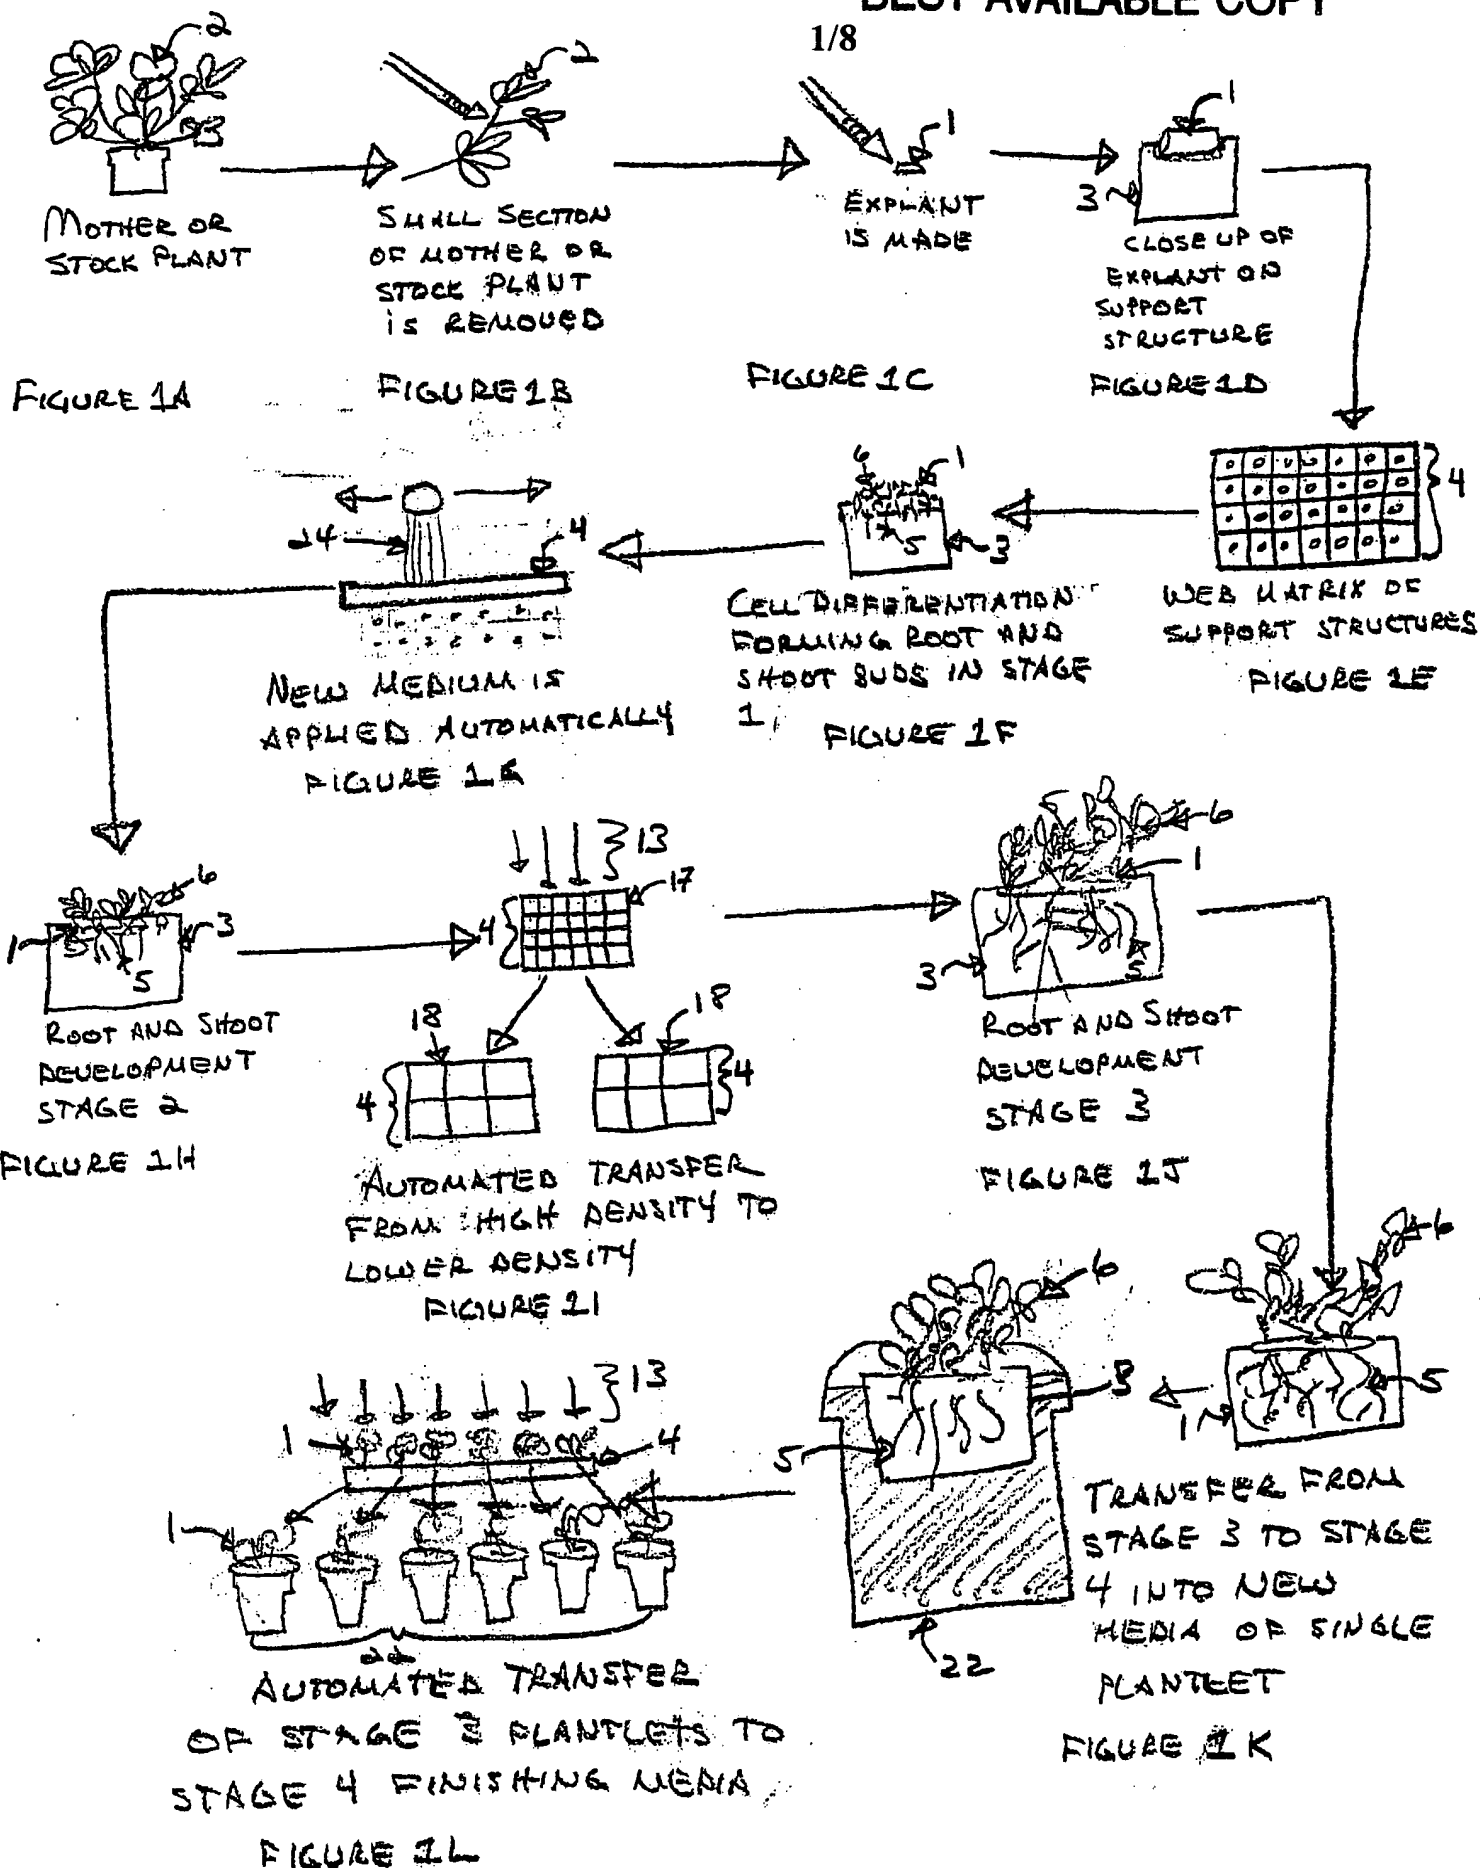 BEST AVAILABLE COPY
1/8
2
MOTHER OR
STOCK PLANT
FIGURE 1A
2
SMALL SECTION
OF MOTHER OR
STOCK PLANT
is REMOVED
FIGURE 1B
1
EXPLANT
IS MADE
FIGURE 1C
1
3
CLOSE UP OF
EXPLANT ON
SUPPORT
STRUCTURE
FIGURE 1D
4
WEB MATRIX OF
SUPPORT STRUCTURES
FIGURE 1E
6
1
5
3
CELL DIFFERENTIATION
FORMING ROOT AND
SHOOT BUDS IN STAGE
1,
FIGURE 1F
24
4
NEW MEDIUM IS
APPLIED AUTOMATICALLY
FIGURE 1G
6
1
3
5
ROOT AND SHOOT
DEVELOPMENT
STAGE 2
FIGURE 1H
13
17
4
18
18
4
4
AUTOMATED TRANSFER
FROM HIGH DENSITY TO
LOWER DENSITY
FIGURE 1I
6
1
3
5
ROOT AND SHOOT
DEVELOPMENT
STAGE 3
FIGURE 1J
6
5
1
6
3
5
22
TRANSFER FROM
STAGE 3 TO STAGE
4 INTO NEW
MEDIA OF SINGLE
PLANTLET
FIGURE 1K
13
1
4
1
22
AUTOMATED TRANSFER
OF STAGE 3 PLANTLETS TO
STAGE 4 FINISHING MEDIA
FIGURE 1L